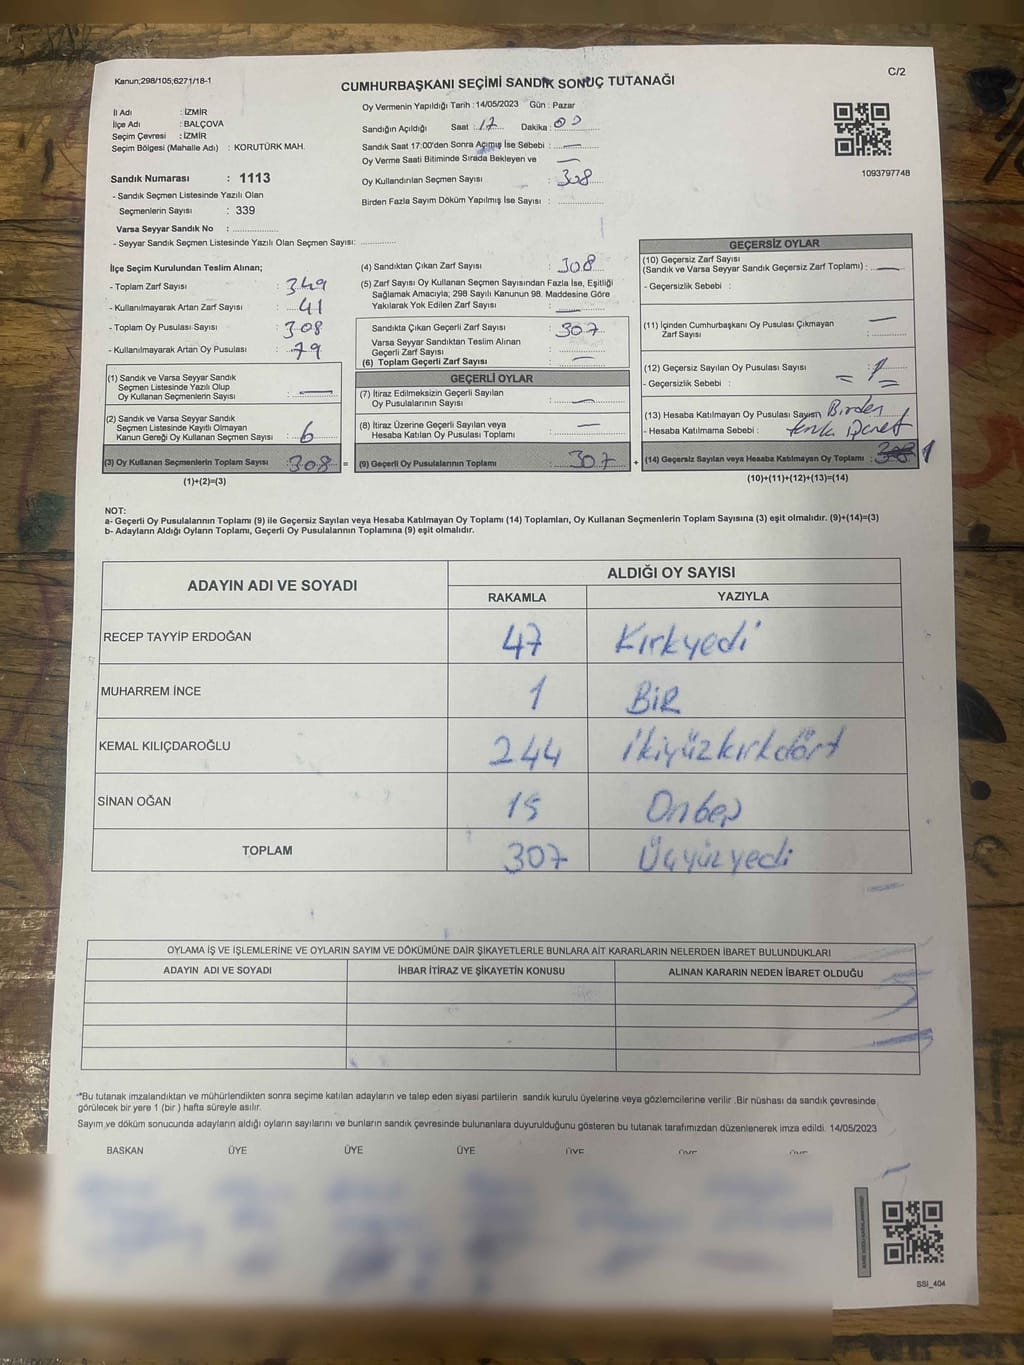 Kanun;298/105;6271/18-1
C/2
CUMHURBAŞKANI SEÇİMİ SANDIK SONUÇ TUTANAĞI
İl Adı : İZMİR
İlçe Adı : BALÇOVA
Seçim Çevresi : İZMİR
Seçim Bölgesi (Mahalle Adı) : KORUTÜRK MAH.
Sandık Numarası : 1113
- Sandık Seçmen Listesinde Yazılı Olan
Seçmenlerin Sayısı : 339
Varsa Seyyar Sandık No :
- Seyyar Sandık Seçmen Listesinde Yazılı Olan Seçmen Sayısı:
Oy Vermenin Yapıldığı Tarih : 14/05/2023 Gün : Pazar
Sandığın Açıldığı Saat : 17 Dakika :
Sandık Saat 17:00'den Sonra Açımış İse Sebebi : —
Oy Verme Saati Bitiminde Sırada Bekleyen ve —
Oy Kullandırılan Seçmen Sayısı : 308
Birden Fazla Sayım Döküm Yapılmış İse Sayısı :
1093797748
İlçe Seçim Kurulundan Teslim Alınan;
- Toplam Zarf Sayısı : 349
- Kullanılmayarak Artan Zarf Sayısı : 41
- Toplam Oy Pusulası Sayısı : 308
- Kullanılmayarak Artan Oy Pusulası : 79
(1) Sandık ve Varsa Seyyar Sandık
Seçmen Listesinde Yazılı Olup
Oy Kullanan Seçmenlerin Sayısı : —
(2) Sandık ve Varsa Seyyar Sandık
Seçmen Listesinde Kayıtlı Olmayan
Kanun Gereği Oy Kullanan Seçmen Sayısı : 6
(3) Oy Kullanan Seçmenlerin Toplam Sayısı : 308 =
(1)+(2)=(3)
(4) Sandıktan Çıkan Zarf Sayısı : 308
(5) Zarf Sayısı Oy Kullanan Seçmen Sayısından Fazla İse, Eşitliği
Sağlamak Amacıyla; 298 Sayılı Kanunun 98. Maddesine Göre
Yakılarak Yok Edilen Zarf Sayısı : —
Sandıkta Çıkan Geçerli Zarf Sayısı : 307
Varsa Seyyar Sandıktan Teslim Alınan
Geçerli Zarf Sayısı :
(6) Toplam Geçerli Zarf Sayısı : —
GEÇERLİ OYLAR
(7) İtiraz Edilmeksizin Geçerli Sayılan
Oy Pusulalarının Sayısı : —
(8) İtiraz Üzerine Geçerli Sayılan veya
Hesaba Katılan Oy Pusulaları Toplamı : —
(9) Geçerli Oy Pusulalarının Toplamı : 307 +
GEÇERSİZ OYLAR
(10) Geçersiz Zarf Sayısı
(Sandık ve Varsa Seyyar Sandık Geçersiz Zarf Toplamı) : —
- Geçersizlik Sebebi :
(11) İçinden Cumhurbaşkanı Oy Pusulası Çıkmayan —
Zarf Sayısı :
(12) Geçersiz Sayılan Oy Pusulası Sayısı : 1
- Geçersizlik Sebebi : = =
(13) Hesaba Katılmayan Oy Pusulası Sayısı Birden
- Hesaba Katılmama Sebebi :
(14) Geçersiz Sayılan veya Hesaba Katılmayan Oy Toplamı : 1
(10)+(11)+(12)+(13)=(14)
NOT:
a- Geçerli Oy Pusulalarının Toplamı (9) ile Geçersiz Sayılan veya Hesaba Katılmayan Oy Toplamı (14) Toplamları, Oy Kullanan Seçmenlerin Toplam Sayısına (3) eşit olmalıdır. (9)+(14)=(3)
b- Adayların Aldığı Oyların Toplamı, Geçerli Oy Pusulalarının Toplamına (9) eşit olmalıdır.
ADAYIN ADI VE SOYADI
ALDIĞI OY SAYISI
RAKAMLA YAZIYLA
RECEP TAYYİP ERDOĞAN 47 Kırkyedi
MUHARREM İNCE 1 BİR
KEMAL KILIÇDAROĞLU 244 ikiyüzkırkdört
SİNAN OĞAN 15 Onbeş
TOPLAM 307 Üçyüzyedi
OYLAMA İŞ VE İŞLEMLERİNE VE OYLARIN SAYIM VE DÖKÜMÜNE DAİR ŞİKAYETLERLE BUNLARA AİT KARARLARIN NELERDEN İBARET BULUNDUKLARI
ADAYIN ADI VE SOYADI İHBAR İTİRAZ VE ŞİKAYETİN KONUSU ALINAN KARARIN NEDEN İBARET OLDUĞU
*Bu tutanak imzalandıktan ve mühürlendikten sonra seçime katılan adayların ve talep eden siyasi partilerin sandık kurulu üyelerine veya gözlemcilerine verilir .Bir nüshası da sandık çevresinde
görülecek bir yere 1 (bir ) hafta süreyle asılır.
Sayım ve döküm sonucunda adayların aldığı oyların sayılarını ve bunların sandık çevresinde bulunanlara duyurulduğunu gösteren bu tutanak tarafımızdan düzenlenerek imza edildi. 14/05/2023
BASKAN ÜYE ÜYE ÜYE ÜYE
SSI_404